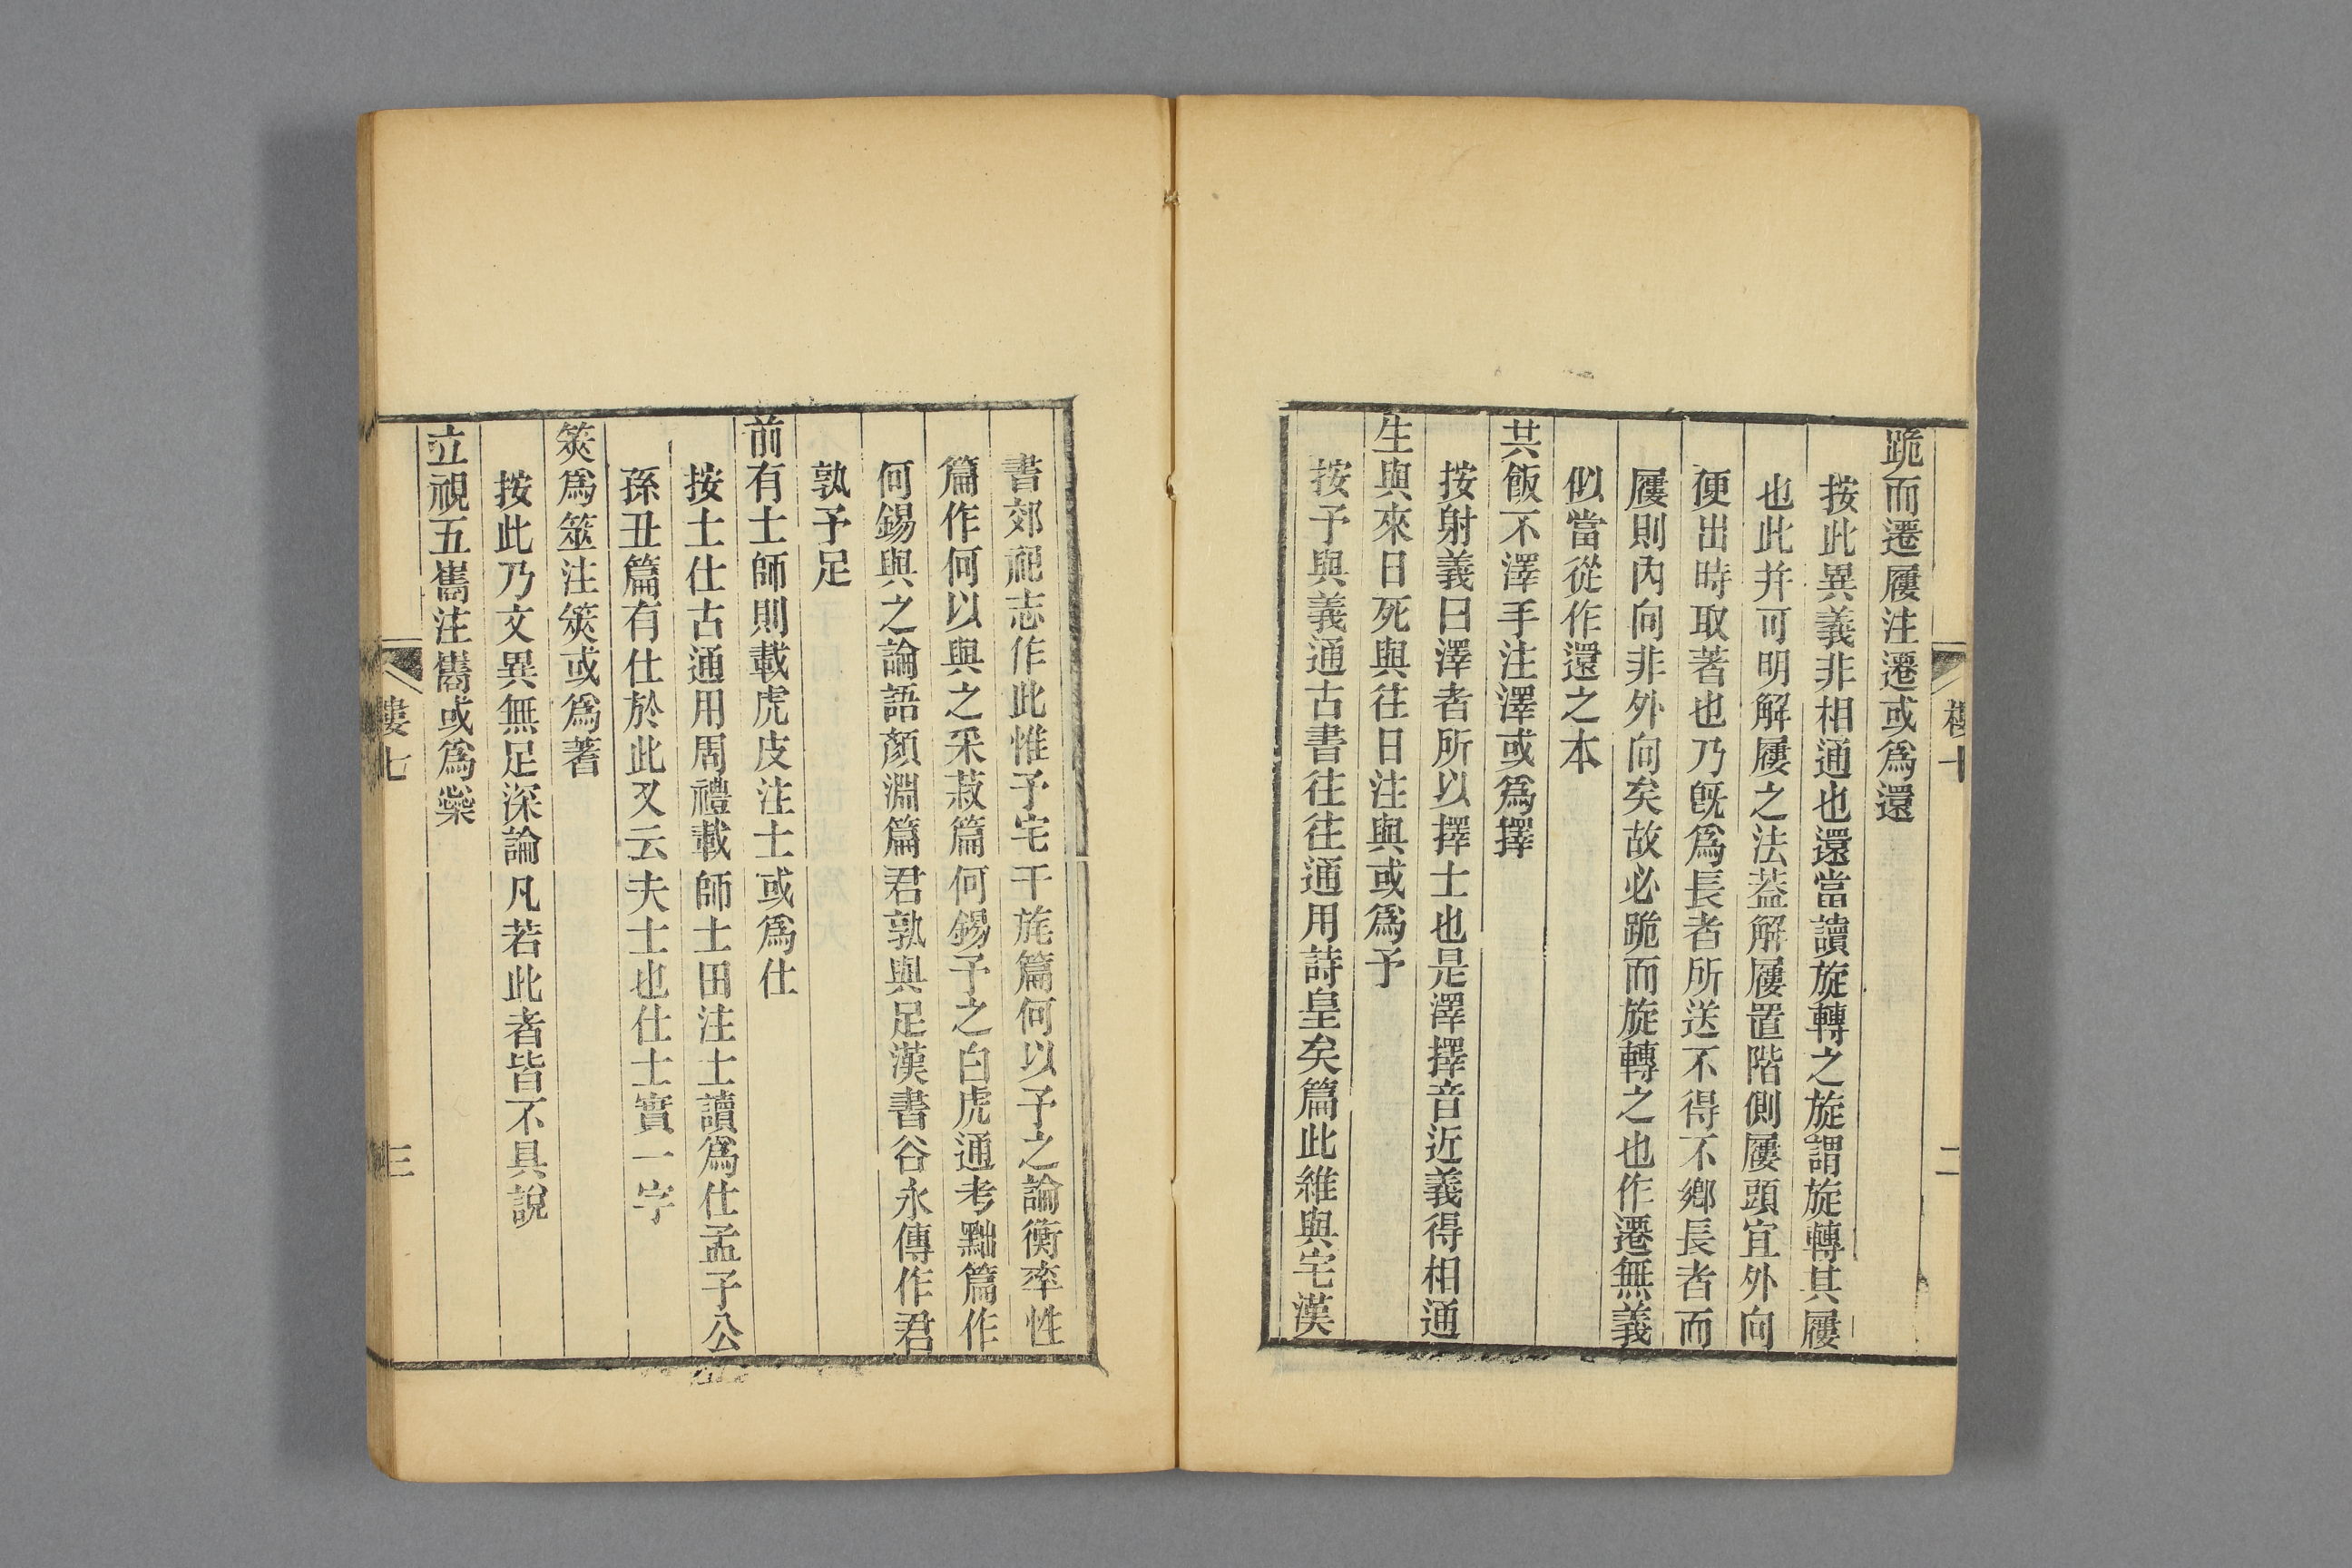 跪而遷屨注遷或爲還
按此異義非相通也還當讀旋轉之旋謂旋轉其屨
也此并可明解屨之法葢解屨置階側屨頭宜外向
便出時取著也乃旣爲長者所送不得不鄕長者而
屨則內向非外向矣故必跪而旋轉之也作遷無義
似當從作還之本
共飯不澤手注澤或爲擇
按射義曰澤者所以擇士也是澤擇音近義得相通
生與來日死與往日注與或爲予
按予與義通古書往往通用詩皇矣篇此維與宅漢
書郊祀志作此惟予宅干旄篇何以予之論衡率性
篇作何以與之采菽篇何錫予之白虎通考黜篇作
何錫與之論語顏淵篇君孰與足漢書谷永傳作君
孰予足
前有士師則載虎皮注士或爲仕
按士仕古通用周禮載師士田注士讀爲仕孟子公
孫丑篇有仕於此又云夫士也仕士實一字
筴爲筮注筴或爲蓍
按此乃文異無足深論凡若此者皆不具說
立視五巂注巂或爲繠
樓七
三
二